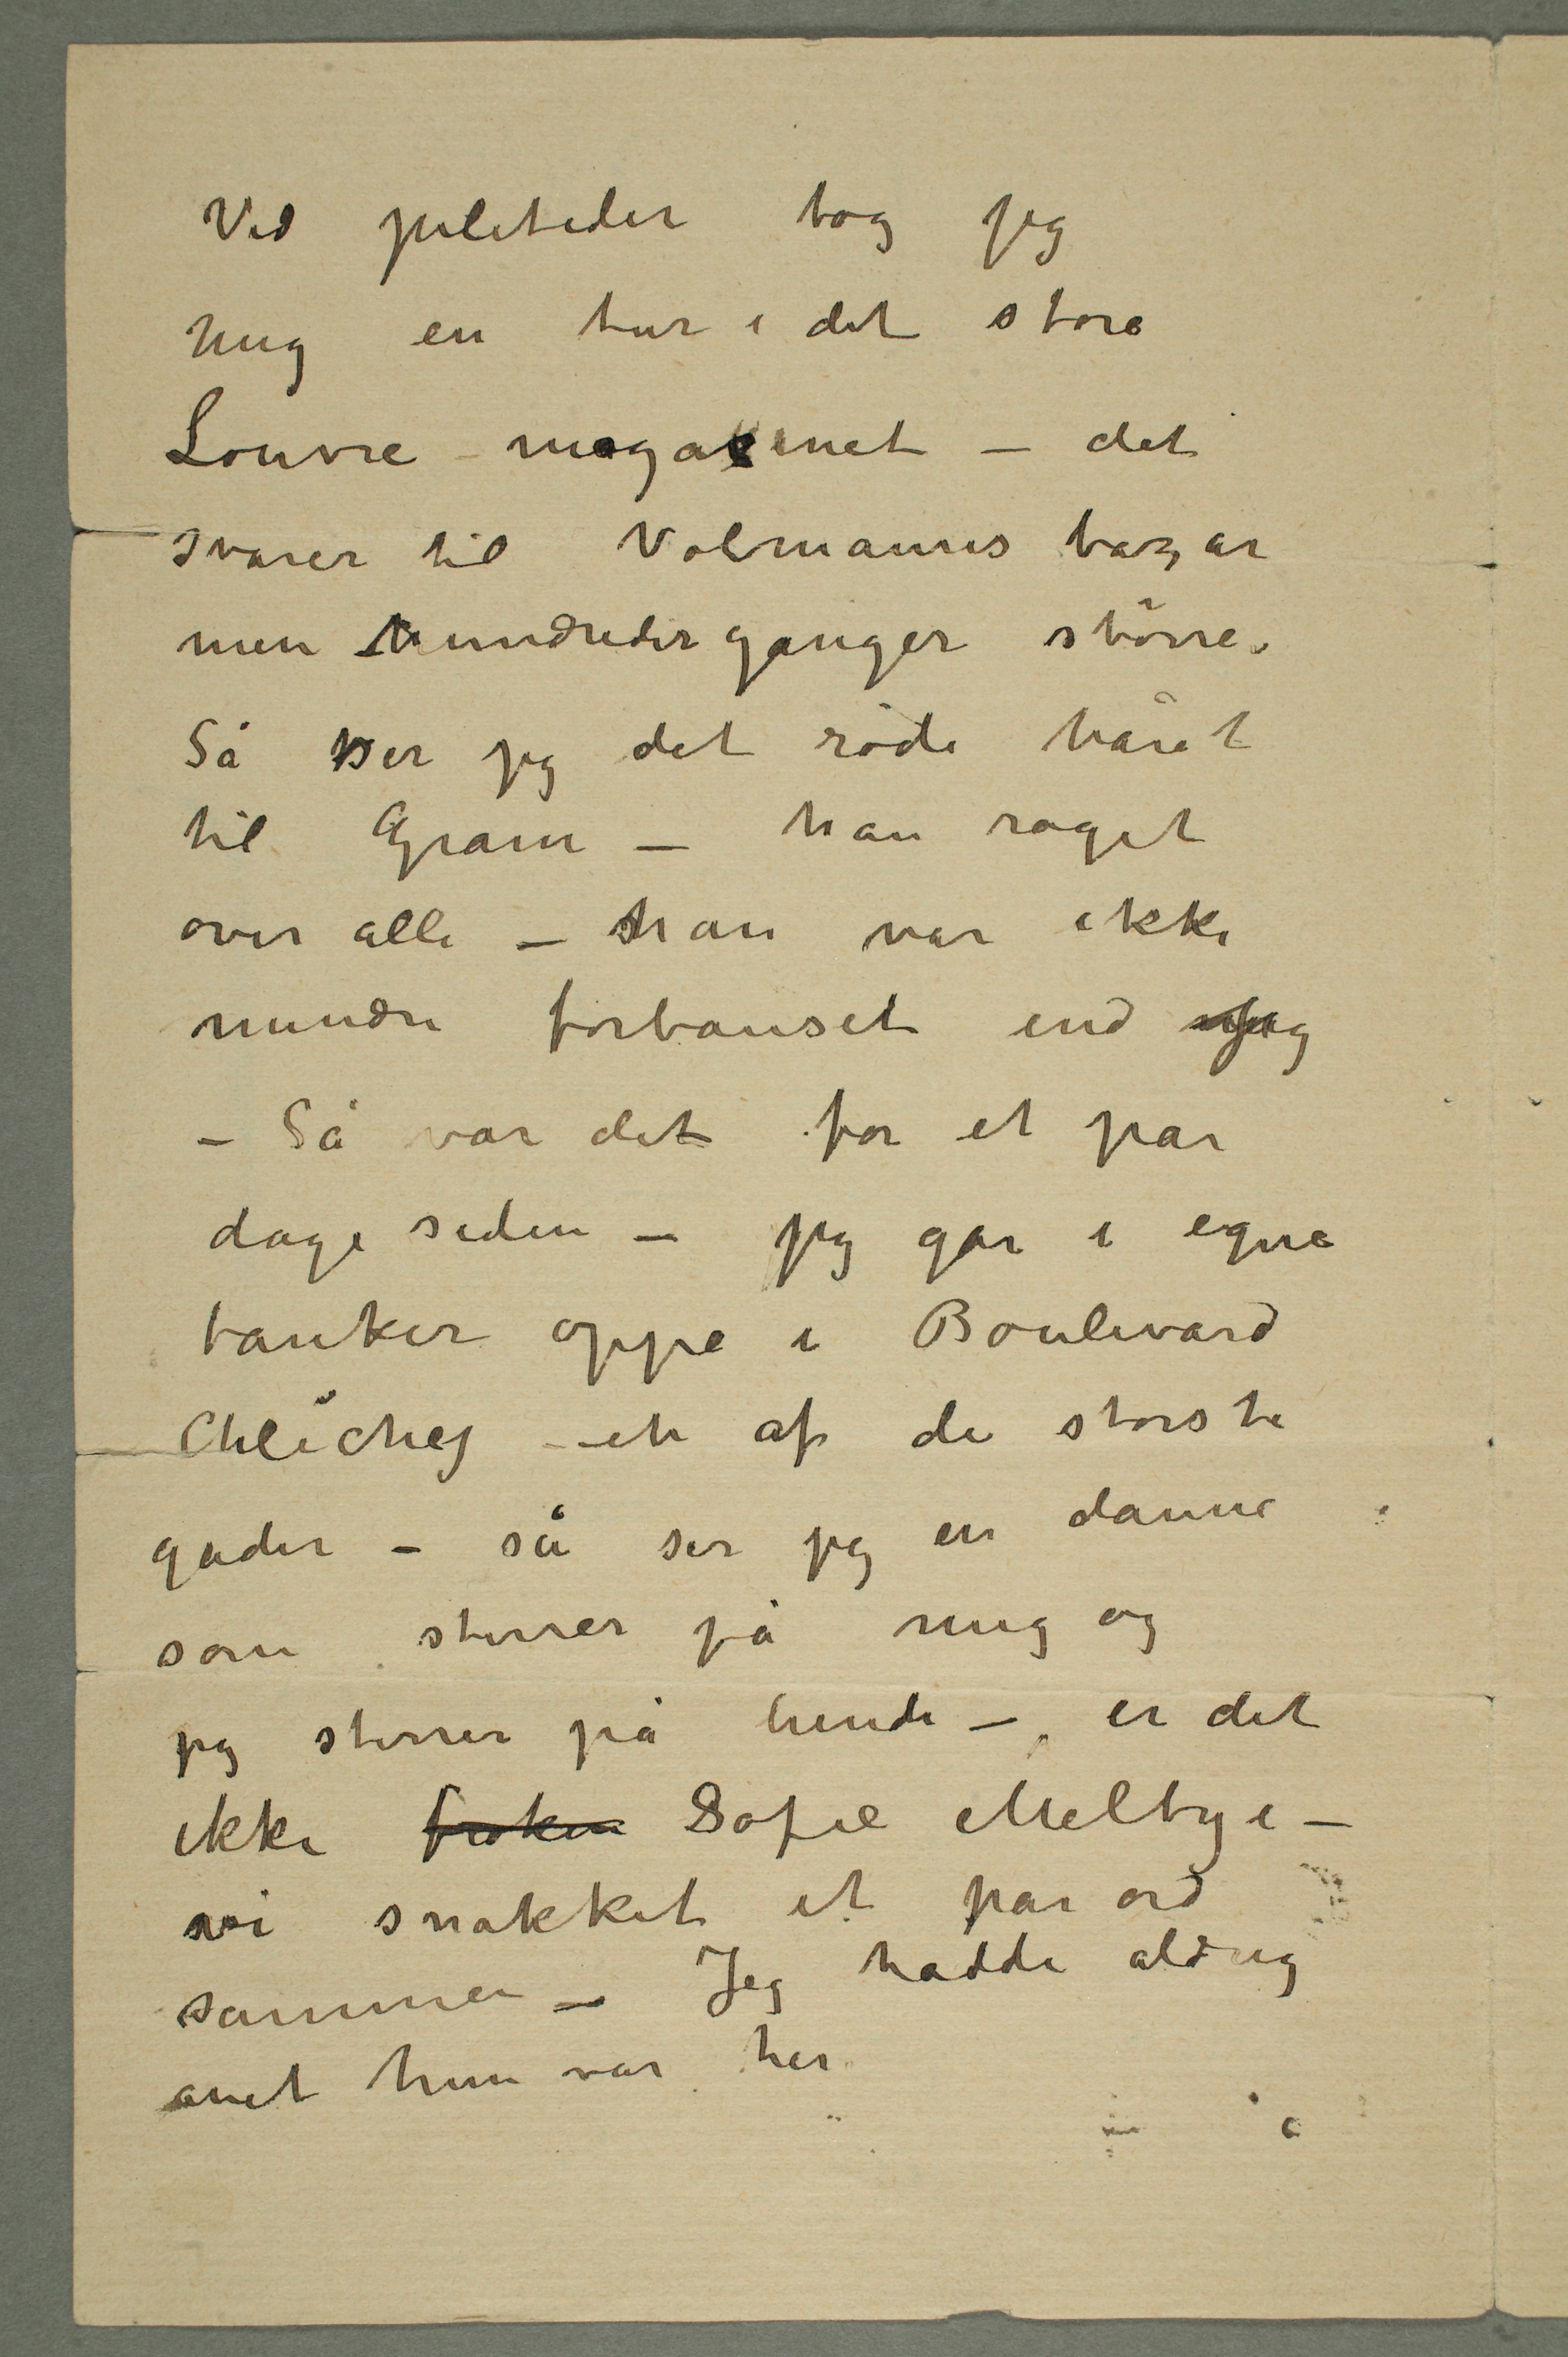 Ved juletider tog jeg
mig en tur i det store
Louvre-magasinet – det
svarer til Volmanns bazar
men hundreder ganger större.
Så ser jeg det röde håret
til Gram – han raget
over alle – han var ikke
mindre forbauset end jeg
– Så var det for et par
dage siden – jeg går i egne
tanker oppe i Boulevard
Chlichy – en af de störste
gader – så ser jeg en danne
som stirrer på mig og
jeg stirrer på hende – er det
ikke frøken Sofie Meltzje –
vi snakket et par ord
sammen – Jeg hadde aldrig
anet hun var her